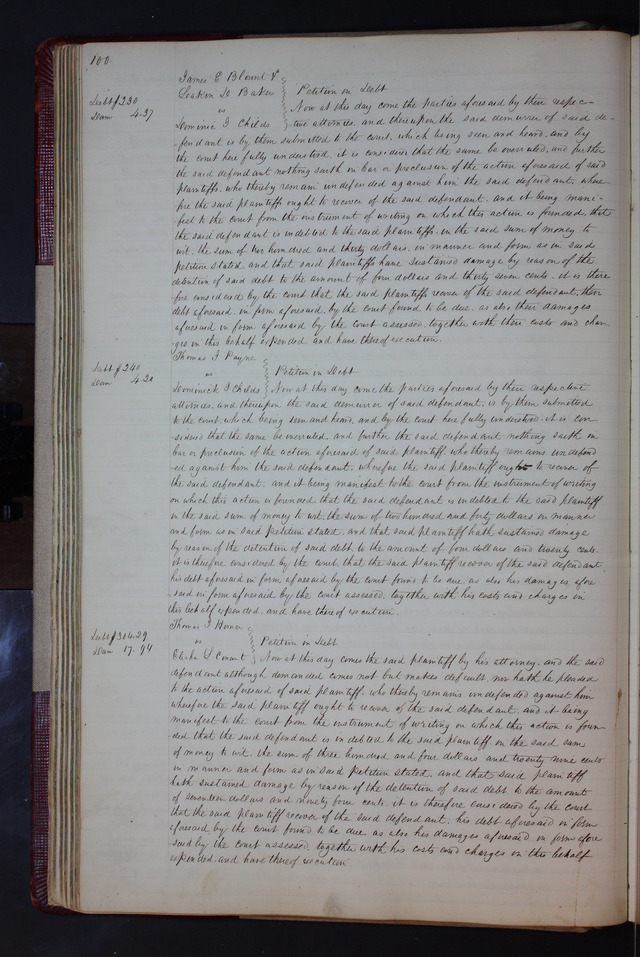 100
James E Blount &
Leakin D Baker } Petition in Debt
Debt $230
Dam 4.37
vs Now at this day come the parties aforesaid by their respec-
Dominic J Childs } tive attornies, and thereupon the said demurrer of said de-
fendant is by them submitted to the court, which being seen and heard, and by
the court here fully understood, it is considered that the same be overruled, and further
the said defendant nothing saith in bar or preclusion of the action aforesaid of said
plaintiffs, who thereby remain undefended against him the said defendant, where
fore the said plaintiff ought to recover of the said defendant, and it being mani-
fest to the court from the instrument of writing on which this action is founded, that
the said defendant is indebted to the said plaintiffs, in the said sum of money to
wit, the sum of two hundred and thirty dollars, in manner and form as in said
petition stated, and that said plaintiffs have sustained damage by reason of the
detention of said debt to the amount of four dollars and thirty seven cents. it is there
fore considered by the court that the said plaintiffs recover of the said defendant, their
debt aforesaid, in form aforesaid, by the court found to be due, as also their damages
aforesaid in form aforesaid by the court assessed, together with their costs and char
ges in this behalf expended and have thereof execution.
Thomas J Payne
Debt $240
Dam 4.20
vs } Petition in Debt
Dominick J Childs } Now at this day come the parties aforesaid by their respective
attornies, and thereupon the said demurrer of said defendant, is by them submitted
to the court, which being seen and heard, and by the court here fully understood, it is con
sidered that the same be overruled and further the said defendant nothing saith in
bar or preclusion of the action aforesaid of said plaintiff, who thereby remains undefend
ed against him the said defendant, wherefore the said plaintiff ought to recover of
the said defendant, and it being manifest to the court from the instrument of writing
on which this action is founded that the said defendant is indebted to the said plaintiff
in the said sum of money to wit, the sum of two hundred and forty dollars in manner
and form as in said Petition stated, and that said plaintiff hath sustained damage
by reason of the detention of said debt, to the amount of four dollars and twenty cents.
it is therefore considered by the court, that the said plaintiff recover of the said defendant,
his debt aforesaid in form aforesaid by the court found to be due as also his damages afore
said in form aforesaid by the court assessed, together with his costs and charges in
this behalf expended, and have thereof execution.
Thomas J
Debt $304.29
Dam 17.94
vs } Petition in Debt
Elisha L } Now at this day comes the said plaintiff by his attorney, and the said
defendant although demanded comes not but makes default nor hath he pleaded
to the action aforesaid of said plaintiff, who thereby remains undefended against him
wherefore the said plaintiff ought to recover of the said defendant, and it being
manifest to the court from the instrument of writing on which this action is foun-
ded that the said defendant is indebted to the said plaintiff in the said sum
of money to wit, the sum of three hundred and four dollars and twenty nine cents
in manner and form as in said Petition stated, and that said plaintiff
hath sustained damage by reason of the detention of said debt to the amount
of seventeen dollars and ninety four cents. it is therefore considered by the court
that the said plaintiff recover of the said defendant, his debt aforesaid in form
aforesaid by the court found to be due as also his damages aforesaid in form afore
said by the court assessed together with his costs and charges in this behalf
expended, and have thereof execution